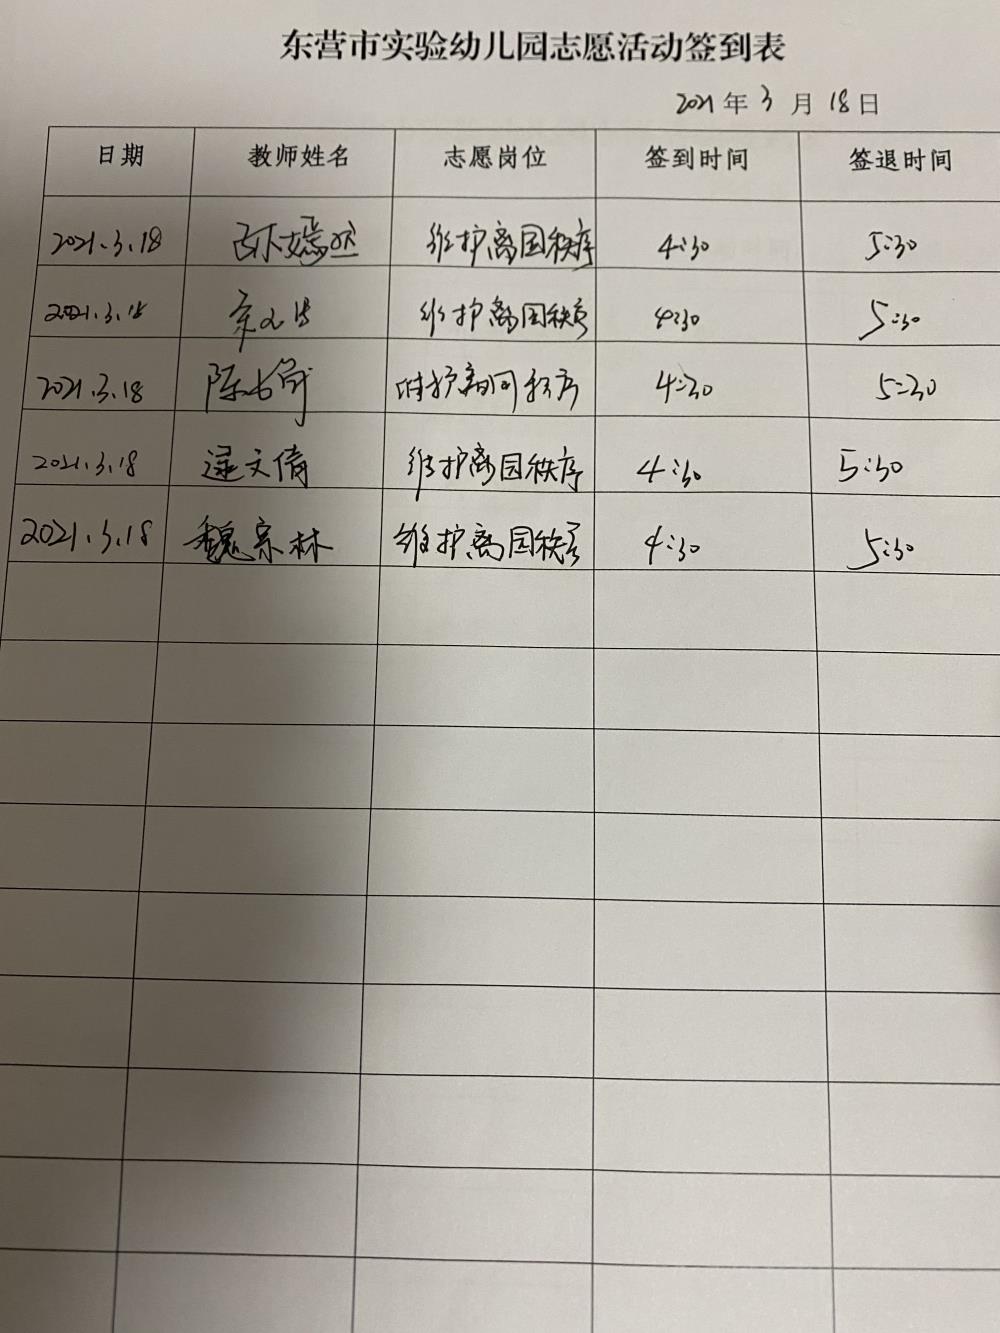 东营市实验幼儿园志愿活动签到表
2021年3月18日
日期 教师姓名 志愿岗位 签到时间 签退时间
2021.3.18 嫣然 维护离园秩序 4:30 5:30
2021.3.18 维护离园秩序 4:30 5:30
2021.3.18 陈 维护离园秩序 4:30 5:30
2021.3.18 逯文倩 维护离园秩序 4:30 5:30
2021.3.18 魏宗林 维护离园秩序 4:30 5:30